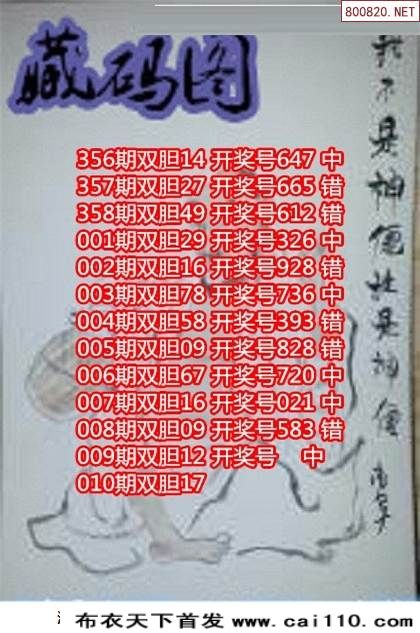 800820.NET
藏码图
356期双胆14 开奖号647 中
357期双胆27 开奖号665 错
358期双胆49 开奖号612 错
001期双胆29 开奖号326 中
002期双胆16 开奖号928 错
003期双胆78 开奖号736 中
004期双胆58 开奖号393 错
005期双胆09 开奖号828 错
006期双胆67 开奖号720 中
007期双胆16 开奖号021 中
008期双胆09 开奖号583 错
009期双胆12 开奖号 中
010期双胆17
不是神僊
是神僊
布衣天下首发 www.cai110.com